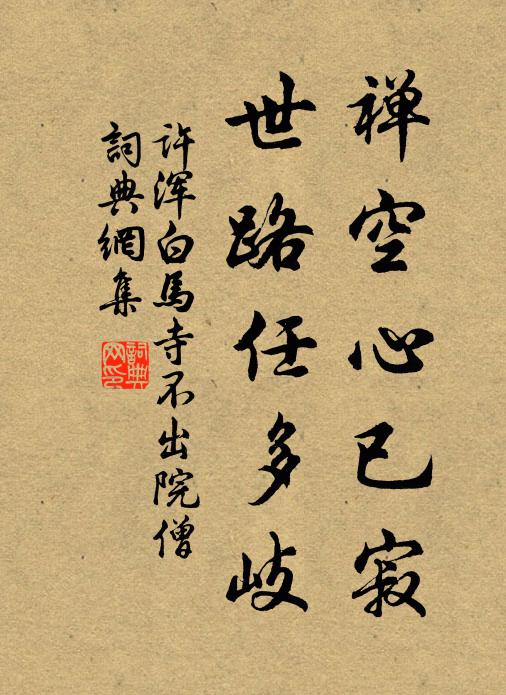 禅空心已寂
世路任多岐
许浑白馬寺不出院僧
詞典網集
詞典网印